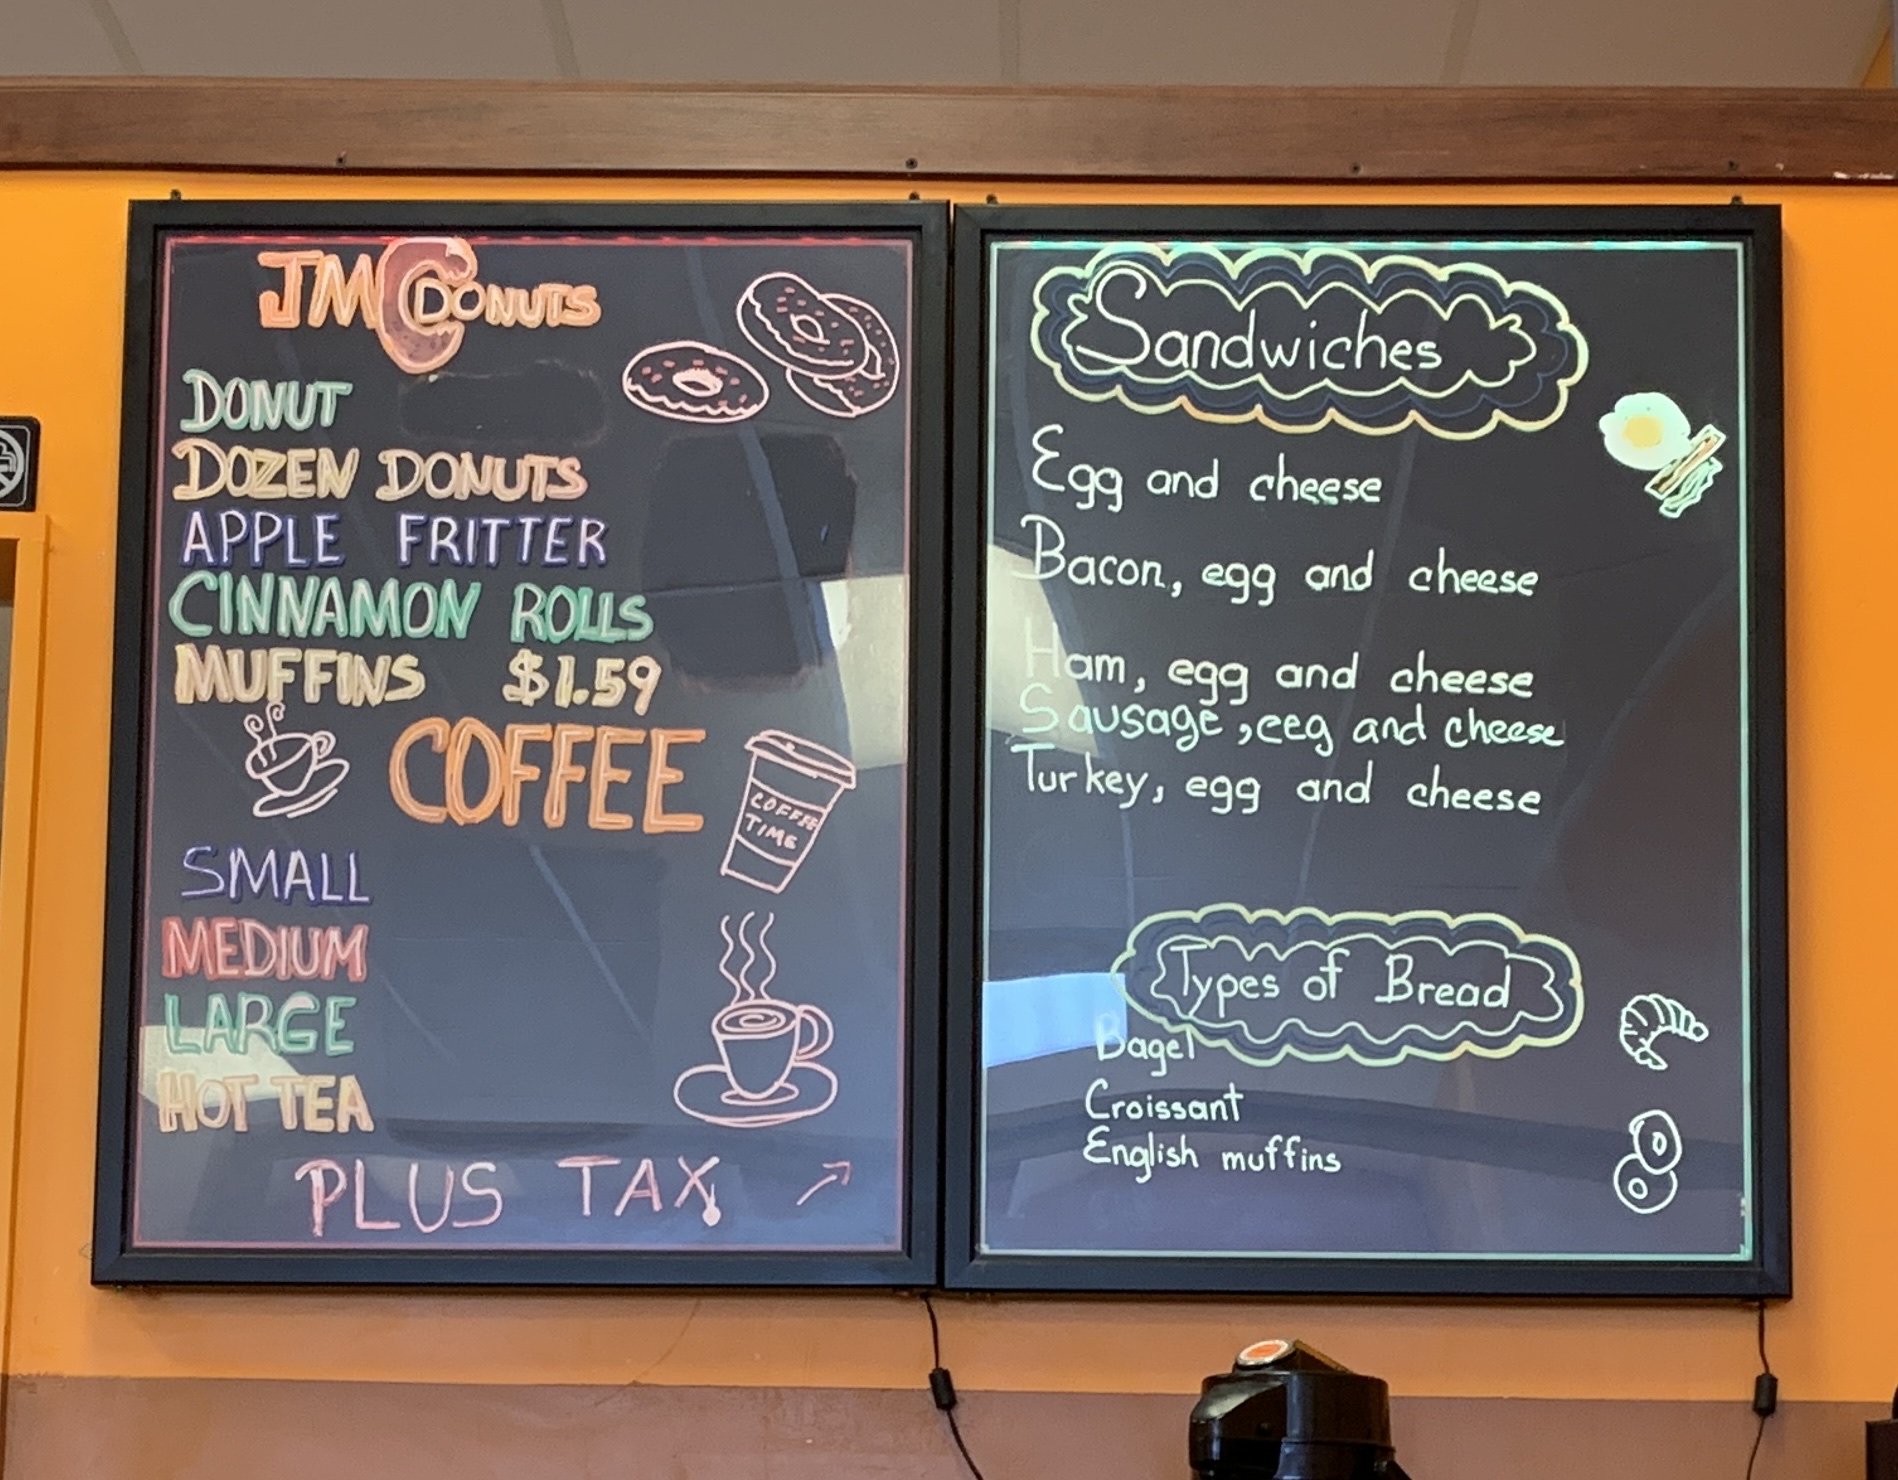 JMC DONUTS
DONUT
DOZEN DONUTS
APPLE FRITTER
CINNAMON ROLLS
MUFFINS $1.59
COFFEE
COFFEE
TIME
SMALL
MEDIUM
LARGE
HOT TEA
PLUS TAX
Sandwiches
Egg and cheese
Bacon, egg and cheese
Ham, egg and cheese
Sausage, eeg and cheese
Turkey, egg and cheese
Types of Bread
Bagel
Croissant
English muffins